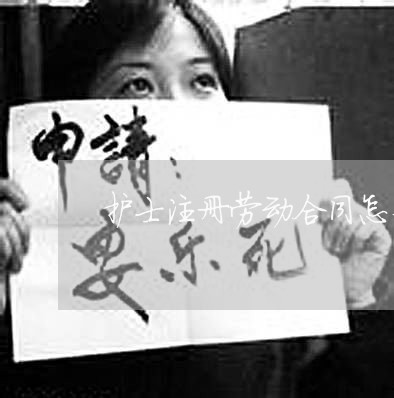 申請：
护士注册劳动合同怎
安乐死